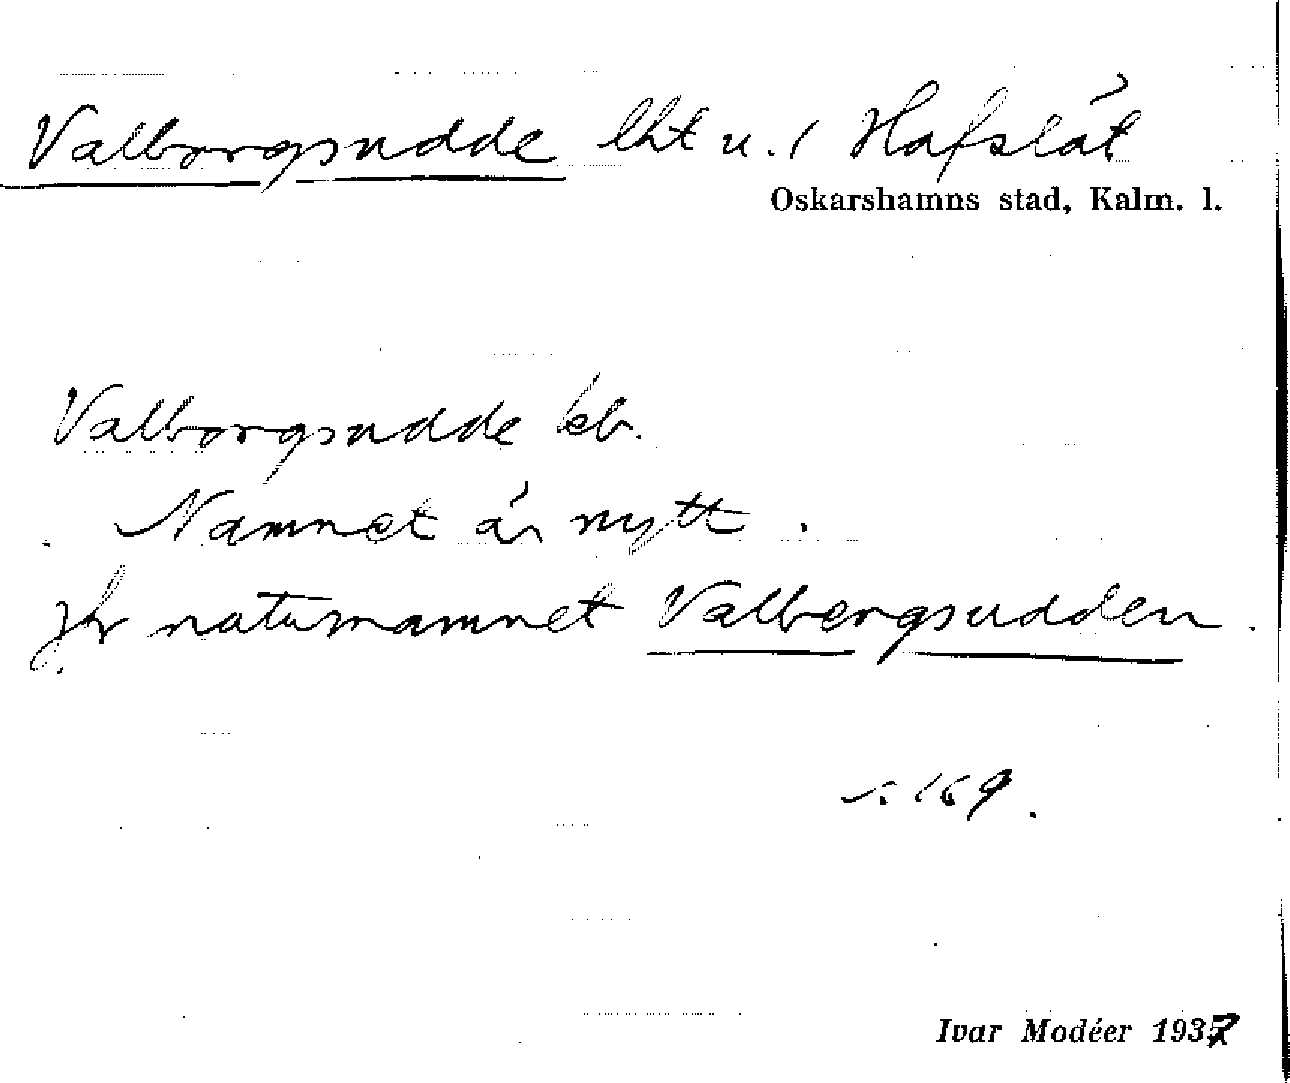 Valborgsudde lht u. 1 Hafslät
Oskarshamns stad, Kalm. l.
Valborgsudde eb.
Namnet är nytt.
Jfr naturnamnet Valbergsudden.
s. 169.
Ivar Modéer 1937